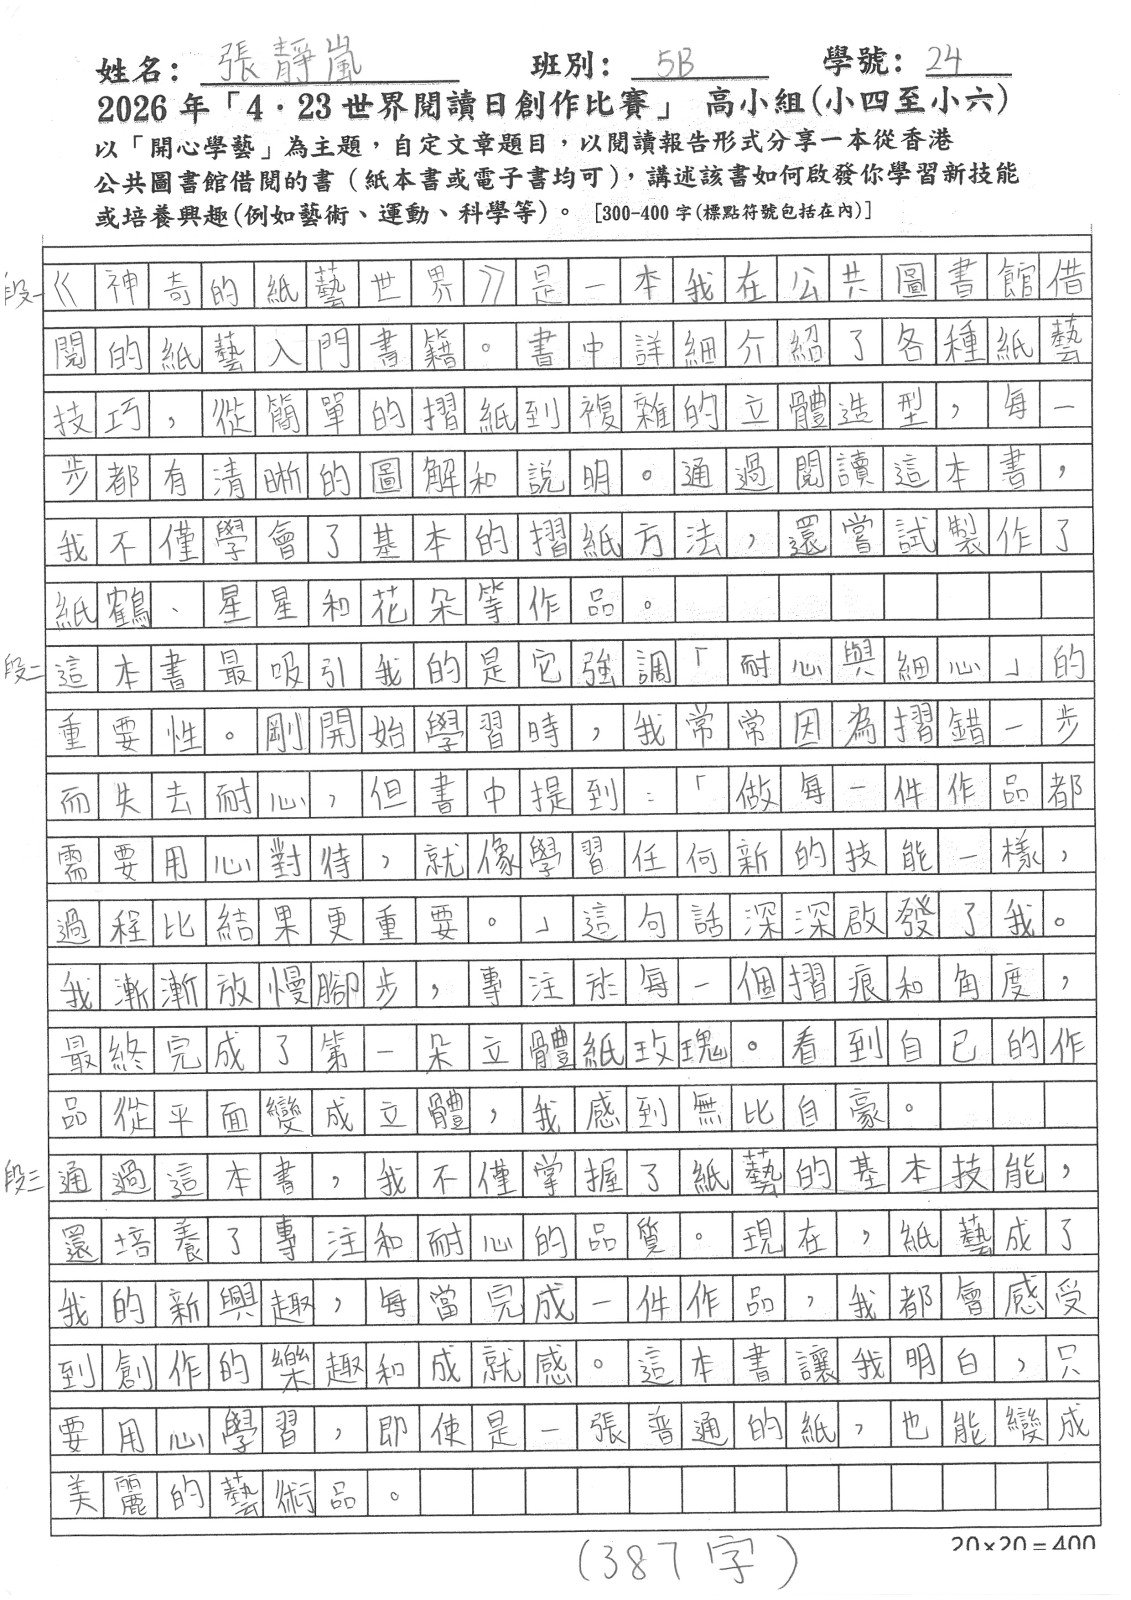 姓名：張靜嵐 班別：5B 學號：24
2026 年「4．23 世界閱讀日創作比賽」 高小組(小四至小六)
以「開心學藝」為主題，自定文章題目，以閱讀報告形式分享一本從香港
公共圖書館借閱的書（紙本書或電子書均可），講述該書如何啟發你學習新技能
或培養興趣(例如藝術、運動、科學等)。 [300-400 字(標點符號包括在內)]
段一《神奇的紙藝世界》是一本我在公共圖書館借
閱的紙藝入門書籍。書中詳細介紹了各種紙藝
技巧，從簡單的摺紙到複雜的立體造型，每一
步都有清晰的圖解和說明。通過閱讀這本書，
我不僅學會了基本的摺紙方法，還嘗試製作了
紙鶴、星星和花朵等作品。
段二這本書最吸引我的是它強調「耐心與細心」的
重要性。剛開始學習時，我常常因為摺錯一步
而失去耐心，但書中提到：「做每一件作品都
需要用心對待，就像學習任何新的技能一樣，
過程比結果更重要。」這句話深深啟發了我。
我漸漸放慢腳步，專注於每一個摺痕和角度，
最終完成了第一朵立體紙玫瑰。看到自己的作
品從平面變成立體，我感到無比自豪。
段三通過這本書，我不僅掌握了紙藝的基本技能，
還培養了專注和耐心的品質。現在，紙藝成了
我的新興趣，每當完成一件作品，我都會感受
到創作的樂趣和成就感。這本書讓我明白，只
要用心學習，即使是一張普通的紙，也能變成
美麗的藝術品。
20×20=400
(387字)